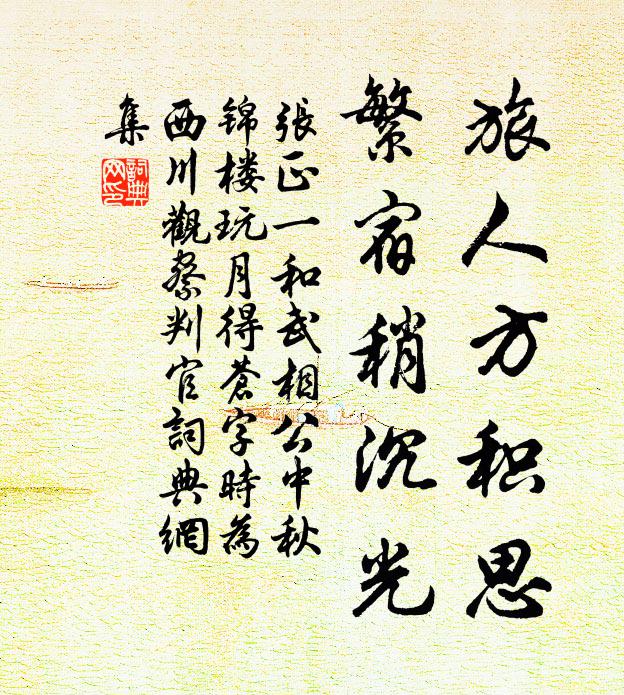 旅人方积思
繁宿稍沉光
張正一和武相公中秋
锦楼玩月得蒼字時為
西川觀察判官詞典網
集
詞典網印